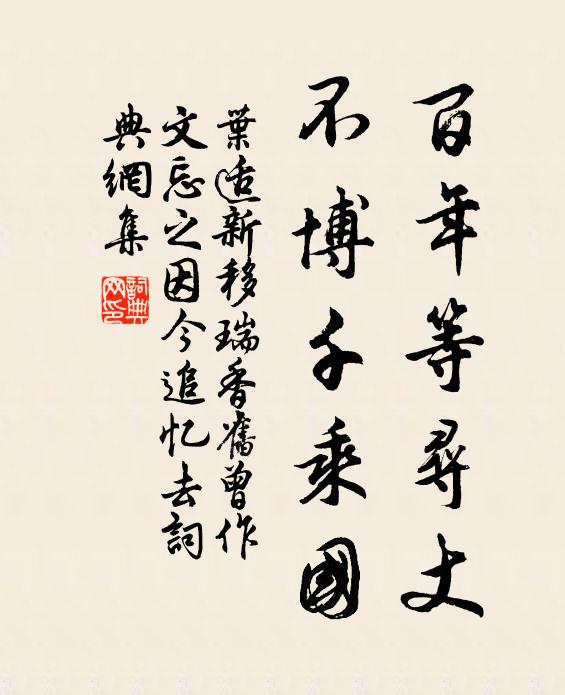 百年等尋丈
不博千乘國
葉适新移瑞香舊曾作
文忘之因今追忆去詞
典網集
詞典
网印